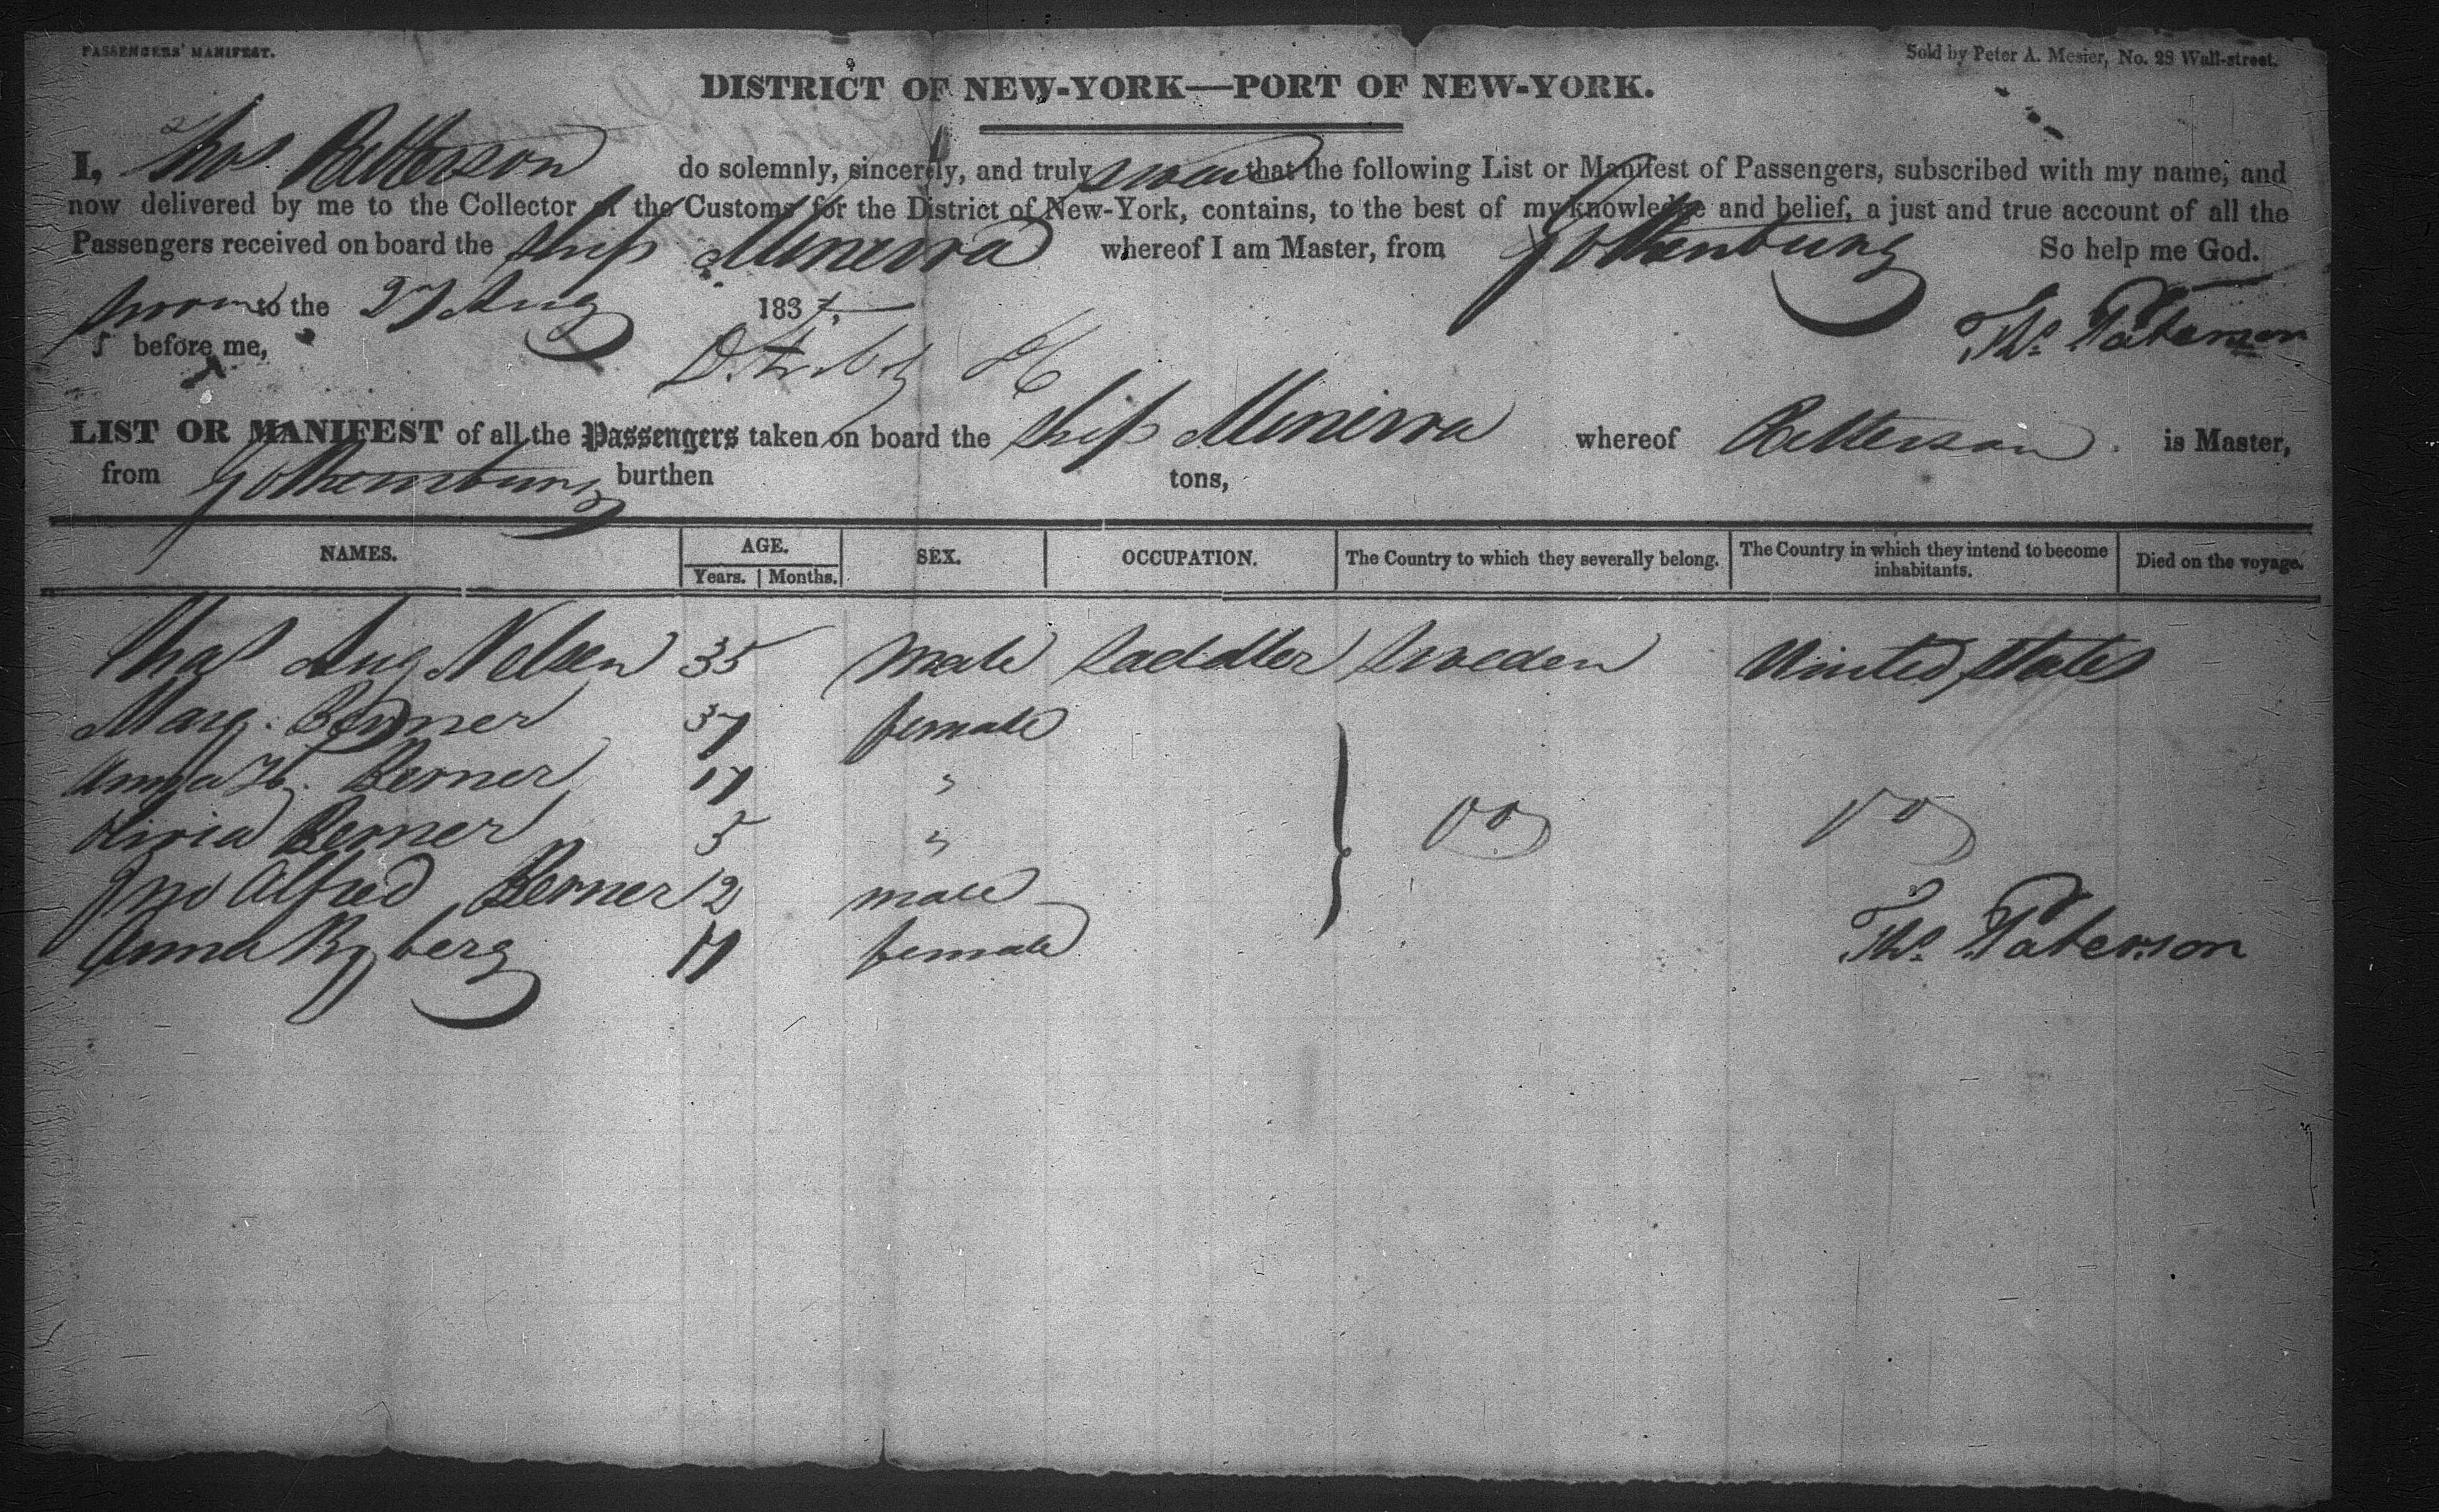 PASSENGERS' MANIFEST.
Sold by Peter A. Mesier, No. 28 Wall-street.
DISTRICT OF NEW-YORK—PORT OF NEW-YORK.
I, Thos Patterson do solemnly, sincerely, and truly swear that the following List or Manifest of Passengers, subscribed with my name, and
now delivered by me to the Collector of the Customs for the District of New-York, contains, to the best of my knowledge and belief, a just and true account of all the
Passengers received on board the Ship Minerva whereof I am Master, from Gothenburg So help me God.
Sworn to the 27 Aug 1837
Ths. Paterson
before me,
LIST OR MANIFEST of all the Passengers taken on board the Ship Minerva whereof Patterson is Master,
from Gothemburg burthen tons,
NAMES. AGE. Years. Months. SEX. OCCUPATION. The Country to which they severally belong. The Country in which they intend to become inhabitants. Died on the voyage.
Chas Aug Nelsen 35 Male Saddler Sweden United States
Marg. Berner 37 female
Anna Berner 17 "
Berner 5 "
Do Do
Jno Alfred Berner 2 male
Anna Ryberg 17 female
Ths. Paterson